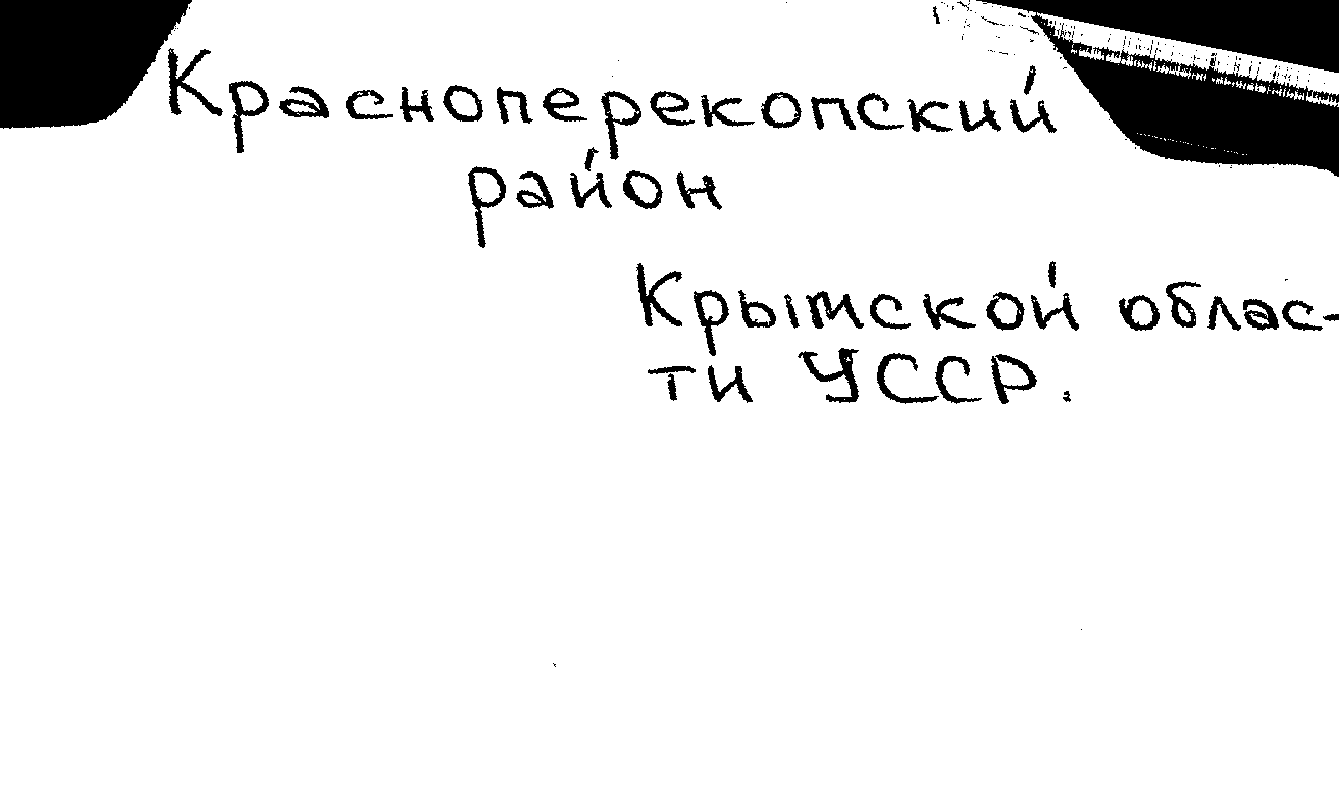 Красноперекопский
район
Крымской облас-
ти УССР.